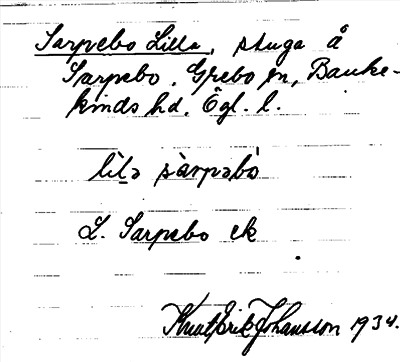 Sarpebo Lilla, stuga å
Sarpebo, Grebo sn, Banke-
kinds hd, Ögl. l.
lìla sàrpəbò
L. Sarpebo ek
Knut Erik Johansson 1934.